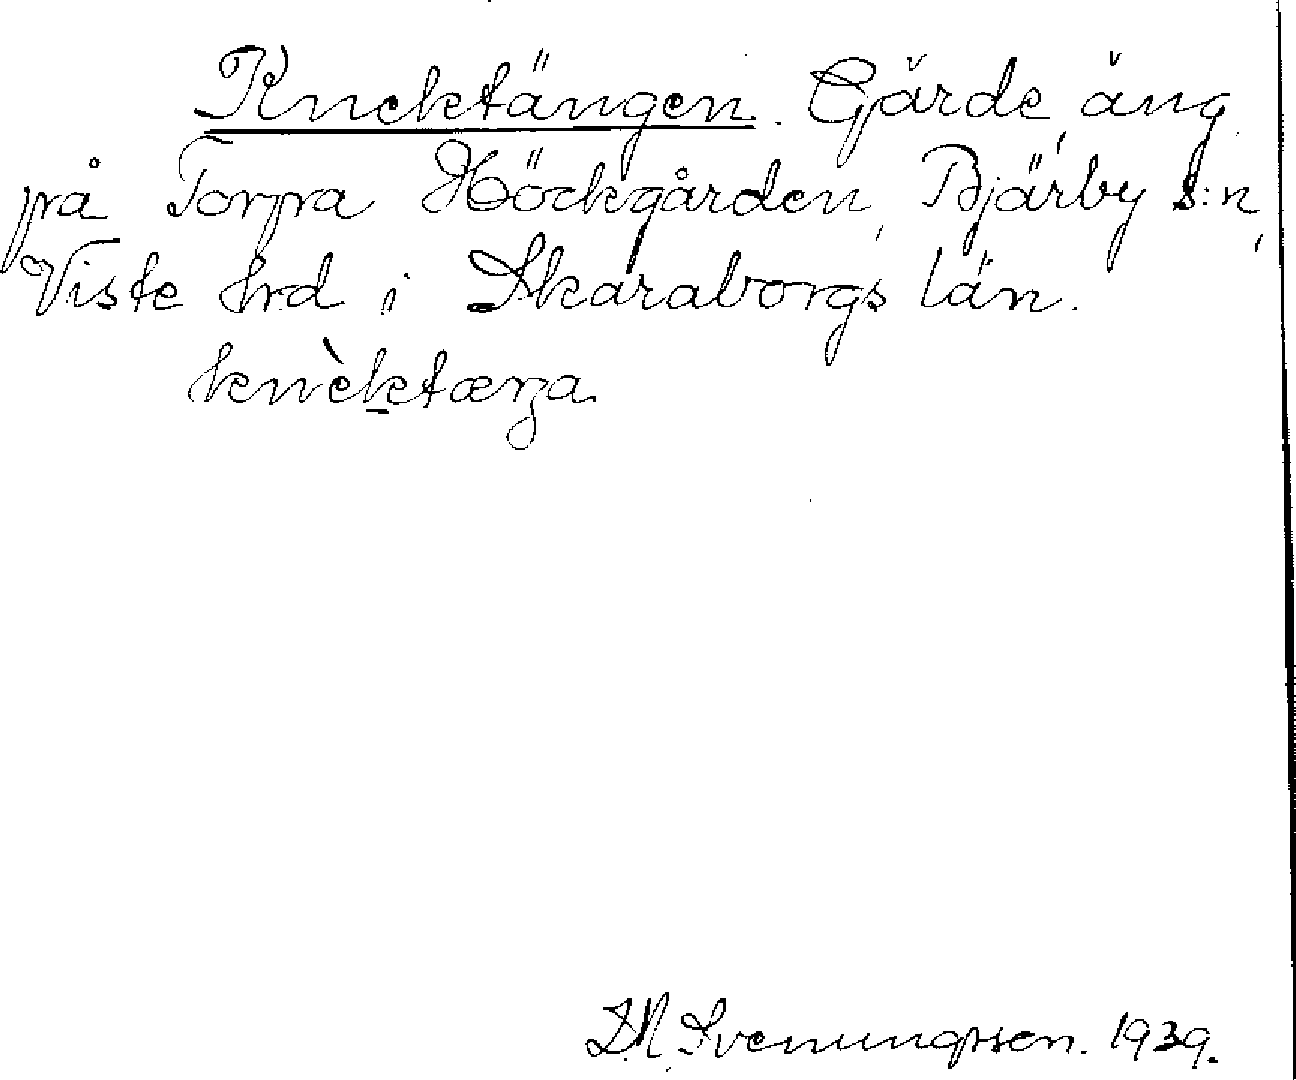 Knektängen. Gärde, äng
på Torpa Höckgården, Bjärby s:n,
Viste hrd i Skaraborgs län.
knèktæŋa.
D.N. Svenungsson. 1939.